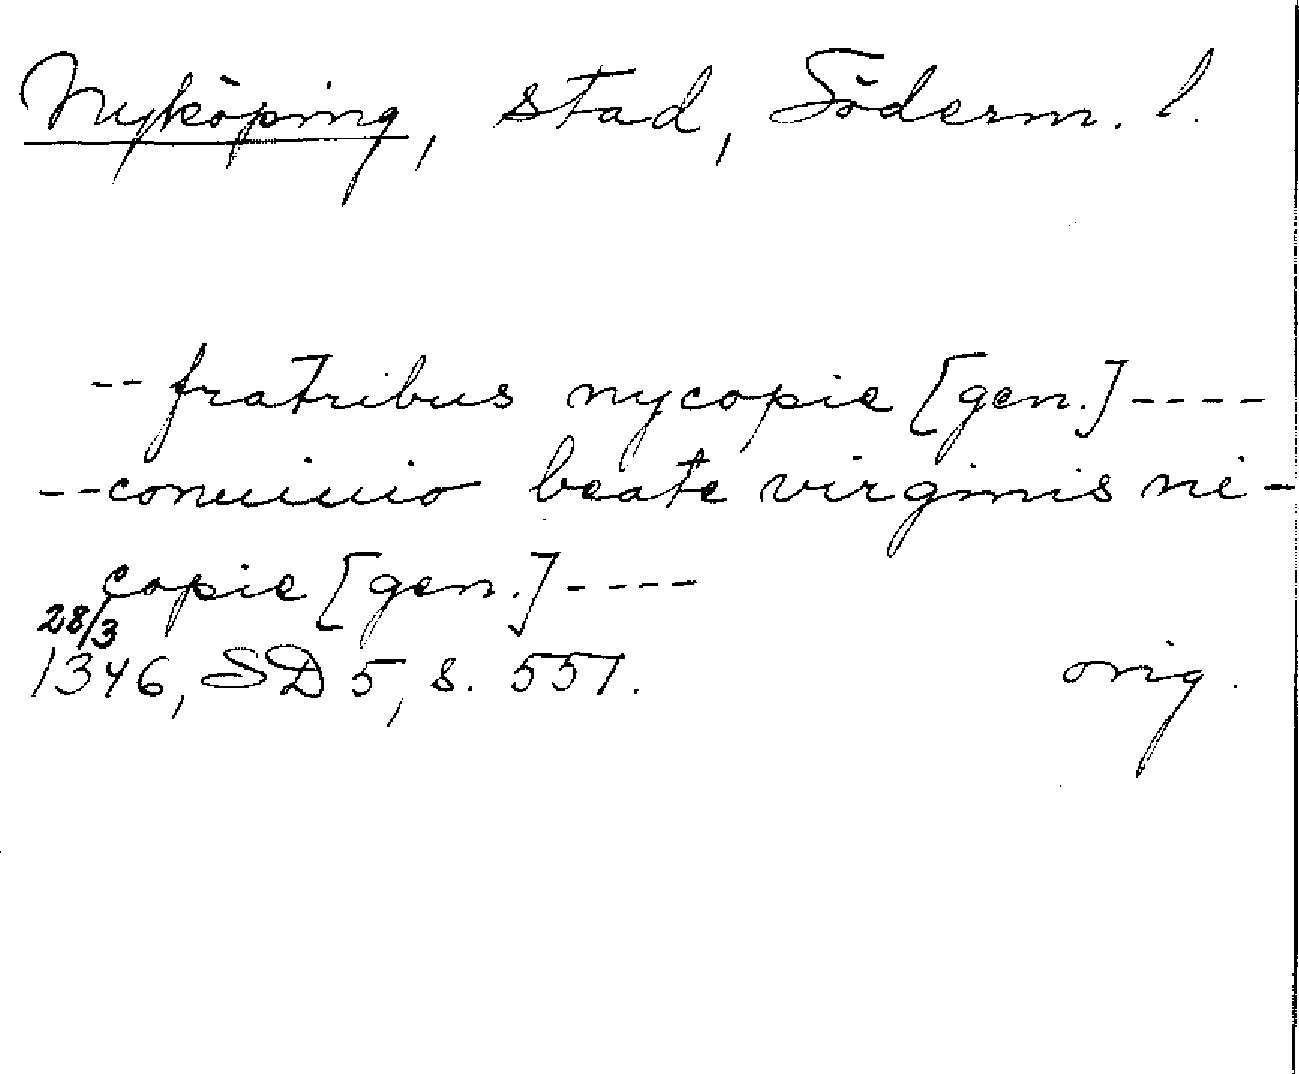 Nyköping, stad, Söderm. l.
-- fratribus nycopie [gen.] ----
-- conuiuio beate virginis ni-
copie [gen.] ----
28/3
1346, SD 5, s. 557. orig.